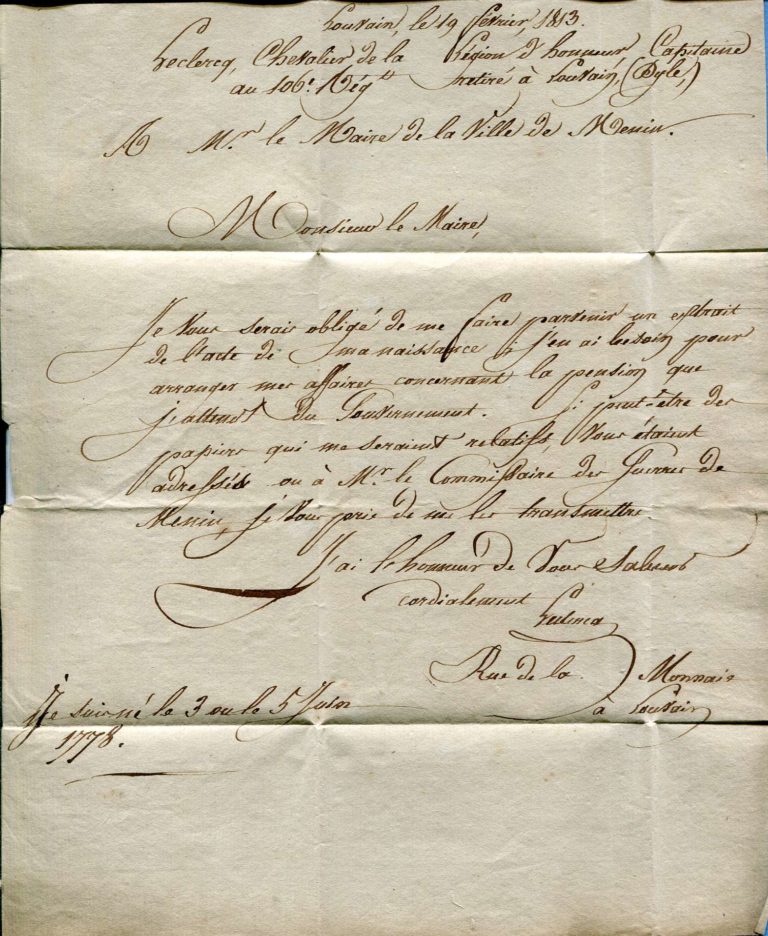 Louvain, le 19 février, 1813.
Leclercq, Chevalier de la Légion d'honneur, Capitaine
au 106e. Régt. retiré à Louvain, (Dyle,)
A Mr. le Maire de la Ville de Menin.
Monsieur le Maire,
Je Vous serais obligé de me faire parvenir un extrait
de l'acte de ma naissance; j'en ai besoin pour
arranger mes affaires concernant la pension que
j'attends du Gouvernement. Si peut-être des
papiers qui me seraient relatifs, Vous étaient
adressés ou à Mr. le Commissaire des Guerres de
Menin, je Vous prie de me les transmettre
J'ai l'honneur de Vous Saluer
cordialement
Leclercq
Rue de la Monnaie
à Louvain
Je suis né le 3 ou le 5 Juin
1778.